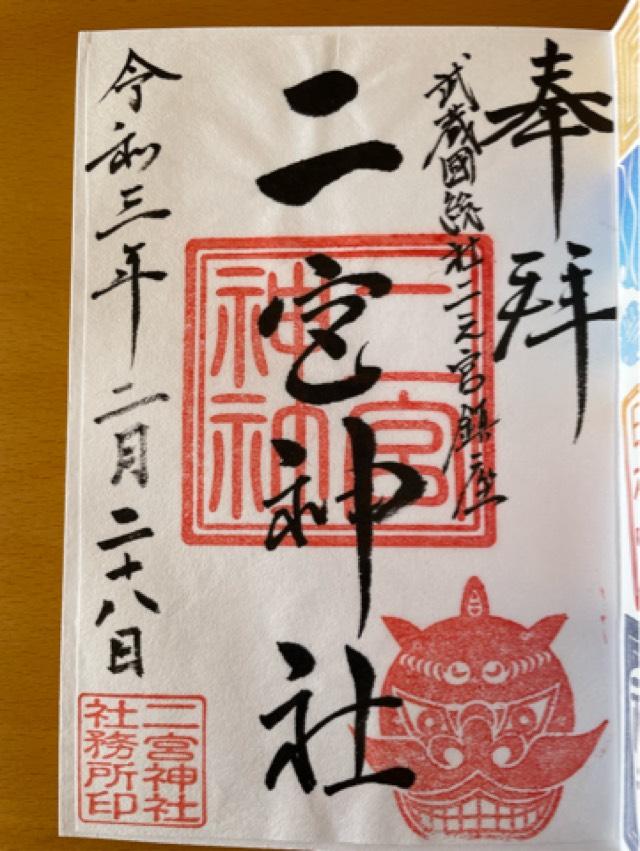 奉拝
武蔵國総社二之宮鎮座
二宮神社
二宮
令和三年二月二十八日
二宮神社
社務所印